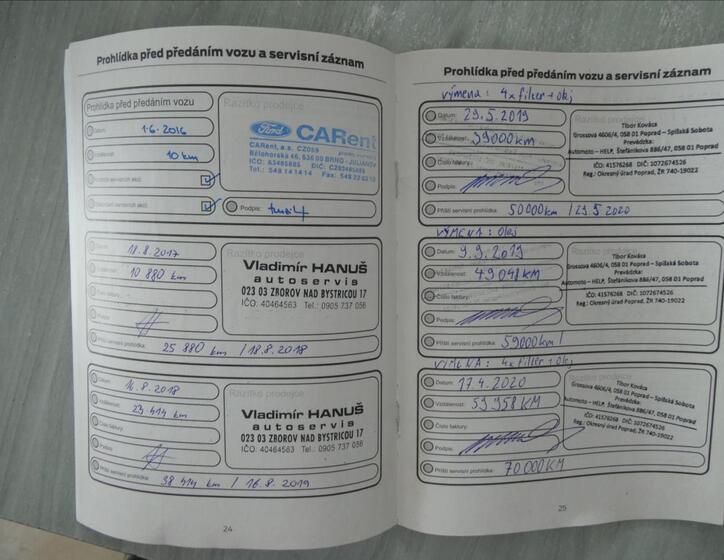 Prohlídka před předáním vozu a servisní záznam
Prohlídka před předáním vozu
Razítko prodejce
Datum: 1.6.2016
Vzdálenost: 10 km
Podpis:
Ford CARent
CARent, a.s. CZ059
Bělohorská 46, 636 00 BRNO - JULIÁNOV
IČO: 63485885 DIČ: CZ63485885
Tel.: 548 141 414
Datum: 18.8.2017
Vzdálenost: 10 880 km
Číslo faktury:
Podpis:
Příští servisní prohlídka: 25 880 km / 18.8.2018
Razítko prodejce
Vladimír HANUŠ
autoservis
023 03 ZBOROV NAD BYSTRICOU 17
IČO: 40464563 Tel.: 0905 737 056
Datum: 16.8.2018
Vzdálenost: 23 414 km
Číslo faktury:
Podpis:
Příští servisní prohlídka: 38 414 km / 16.8.2019
Razítko prodejce
Vladimír HANUŠ
autoservis
023 03 ZBOROV NAD BYSTRICOU 17
IČO: 40464563 Tel.: 0905 737 056
24
Prohlídka před předáním vozu a servisní záznam
výmena: 4x filter + olej
Datum: 29.5.2019
Vzdálenost: 39000 km
Číslo faktury:
Podpis:
Příští servisní prohlídka: 50 000 km / 29.5.2020
Tibor Kováca
Grossova 4606/4, 058 01 Poprad – Spišská Sobota
Prevádzka:
Automoto – HELP, Štefánikova 886/47, 058 01 Poprad
IČO: 41576268 DIČ: 1072674526
Reg.: Okresný úrad Poprad, ŽR 740-19022
VÝMENA: Olej
Datum: 9.9.2019
Vzdálenost: 49 048 KM
Číslo faktury:
Podpis:
Příští servisní prohlídka: 59000 km /
Razítko prodejce
Tibor Kováca
Grossova 4606/4, 058 01 Poprad – Spišská Sobota
Prevádzka:
Automoto – HELP, Štefánikova 886/47, 058 01 Poprad
IČO: 41576268 DIČ: 1072674526
Reg.: Okresný úrad Poprad, ŽR 740-19022
VÝMENA: 4x filter + Olej
Datum: 17.4.2020
Vzdálenost: 59 958 KM
Číslo faktury:
Podpis:
Příští servisní prohlídka: 70 000 KM
Tibor Kováca
Grossova 4606/4, 058 01 Poprad – Spišská Sobota
Prevádzka:
Automoto – HELP, Štefánikova 886/47, 058 01 Poprad
IČO: 41576268 DIČ: 1072674526
Reg.: Okresný úrad Poprad, ŽR 740-19022
25